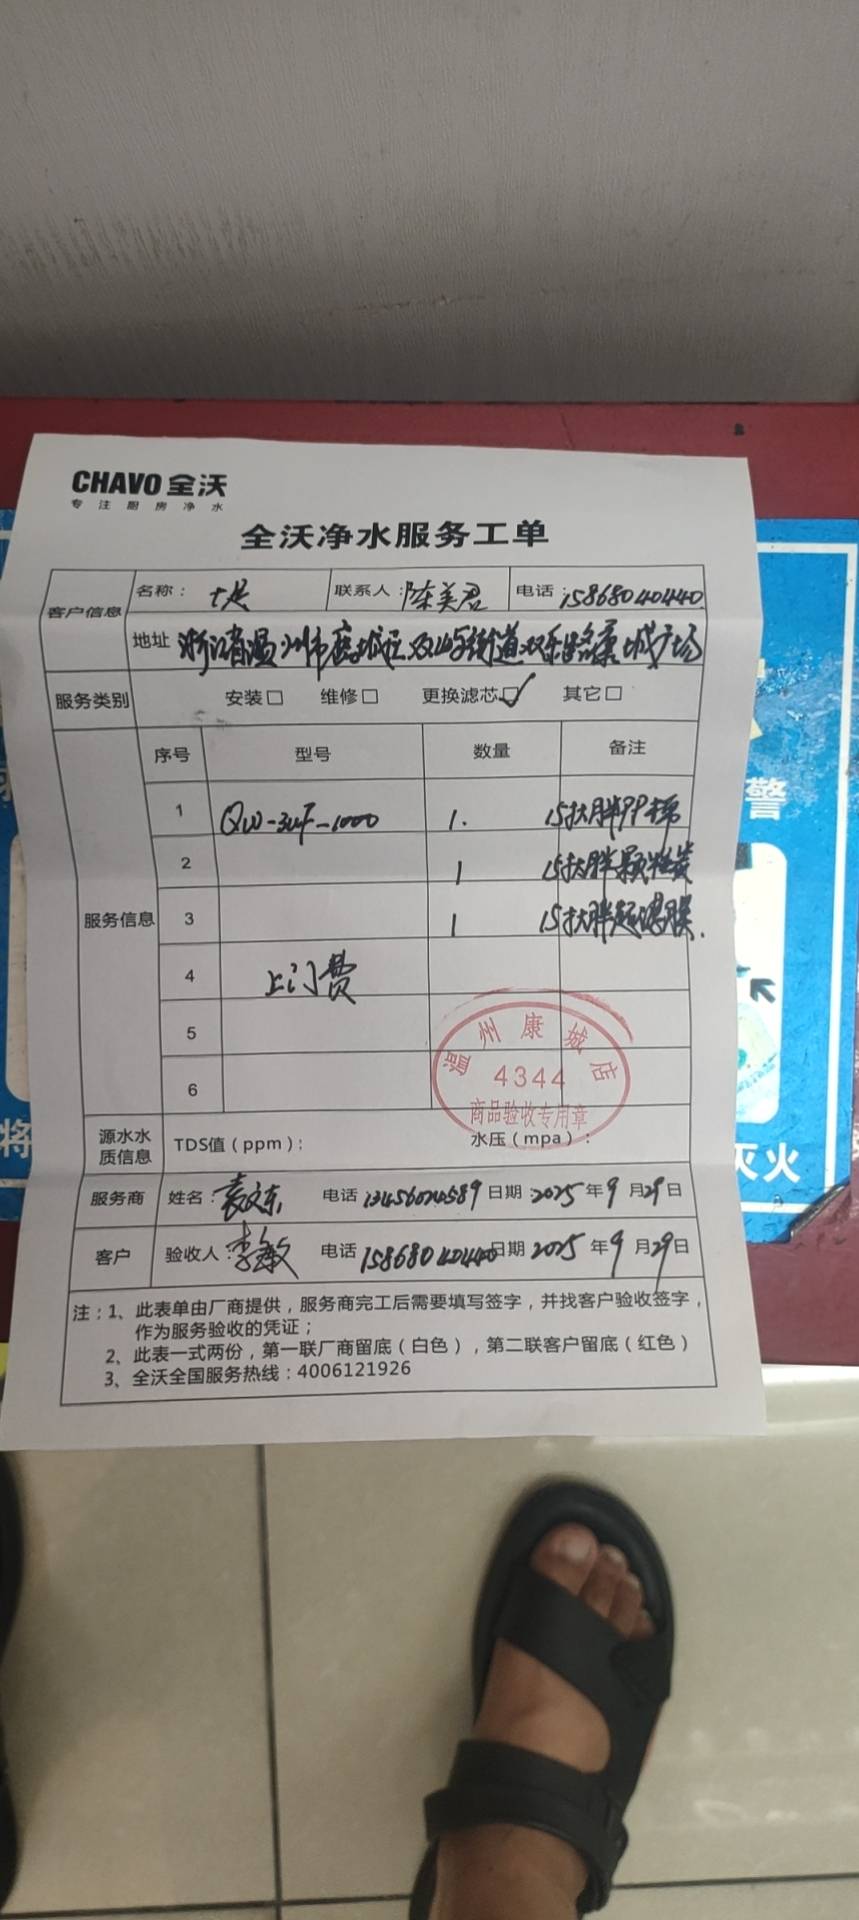 CHAVO 全沃
专注厨房净水
全沃净水服务工单
客户信息 名称： 联系人：陈美君 电话：15868040440
地址 浙江省温州市鹿城区双屿街道 康城广场
服务类别 安装□ 维修□ 更换滤芯□✓ 其它□
服务信息 序号 型号 数量 备注
1 QW-3UF-1000 1. 15寸大胖PP棉
2 1 15寸大胖颗粒炭
3 1 15寸大胖超滤膜.
4 上门费
5
6
温州康城店
4344
商品验收专用章
源水水质信息 TDS值（ppm）： 水压（mpa）：
服务商 姓名： 电话 13456024589 日期：2025年9月29日
客户 验收人：李敏 电话 15868040440 日期 2025年9月29日
注：1、此表单由厂商提供，服务商完工后需要填写签字，并找客户验收签字，
作为服务验收的凭证；
2、此表一式两份，第一联厂商留底（白色），第二联客户留底（红色）
3、全沃全国服务热线：4006121926
警
将
灭火